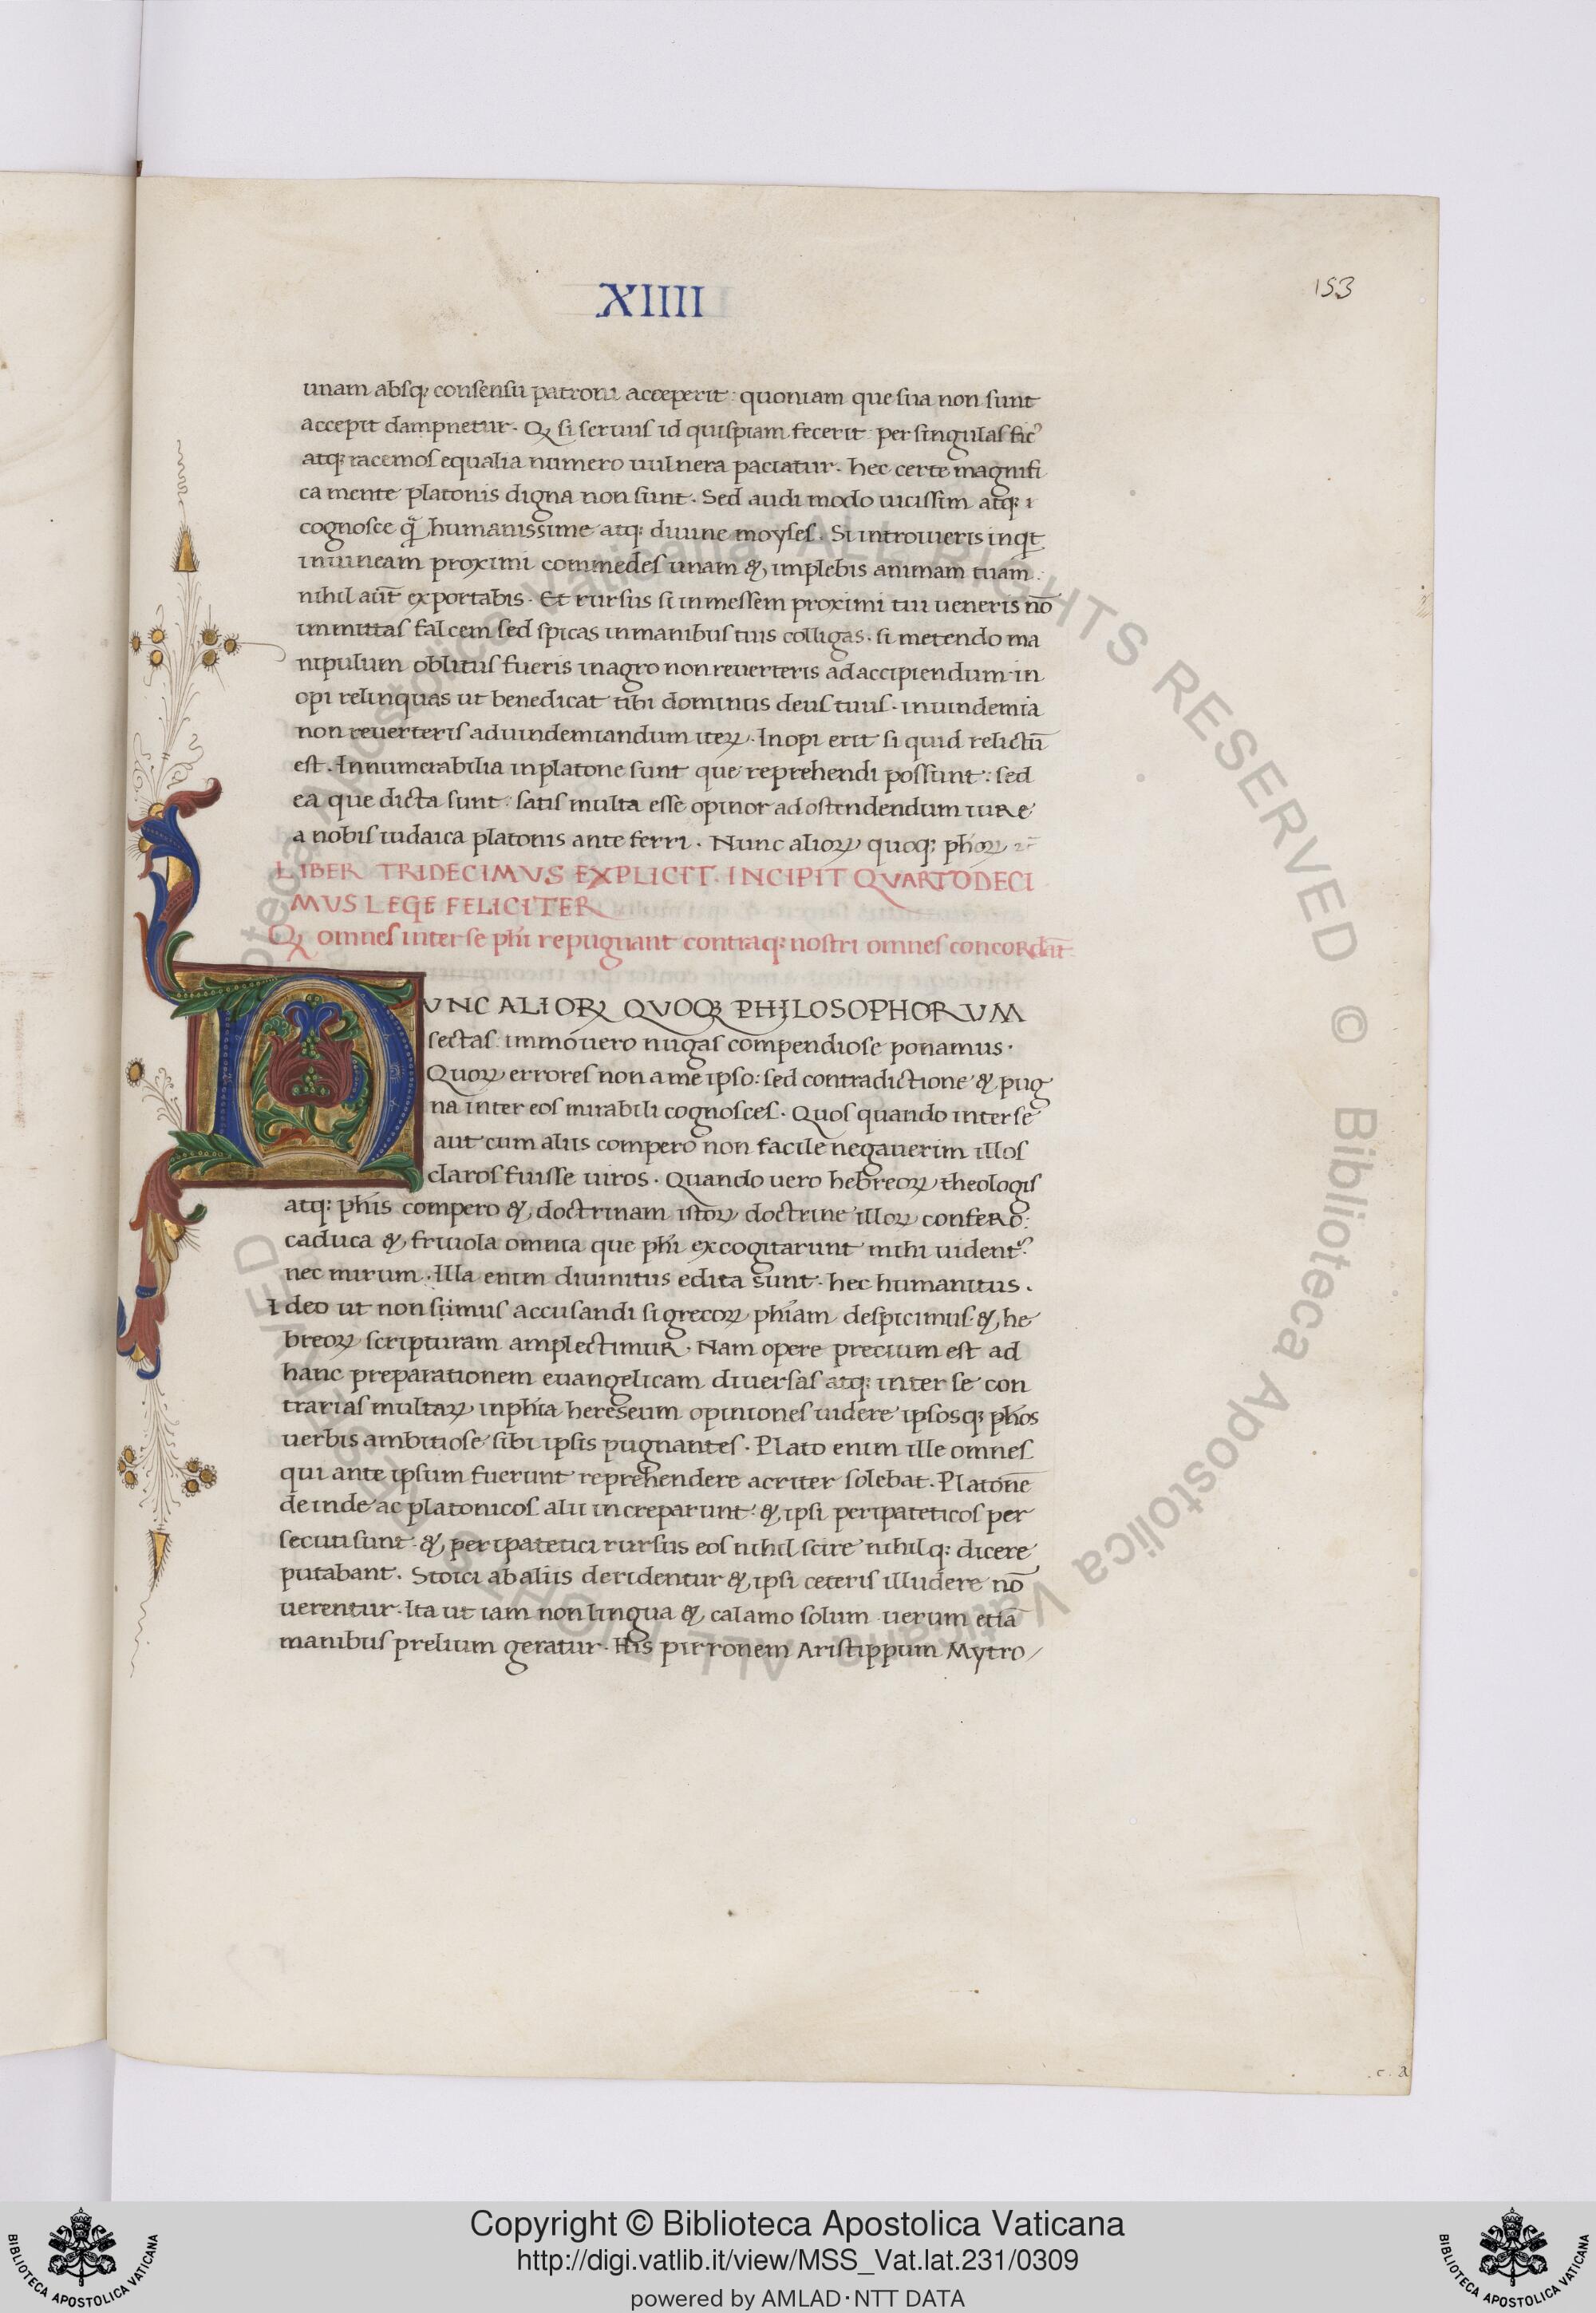 XIIII
153
unam absq; consensu patroni acceperit: quoniam que sua non sunt
accepit dampnetur. Qꝫ si seruus id quispiam fecerit: per singulas fic᷒
atq; racemos equalia numero uulnera paciatur. hec certe magnifi
ca mente platonis digna non sunt. Sed audi modo uicissim atq;
cognosce q̃ humanissime atq; diuine moyses. Si introiueris inqt
in uineam proximi commedes unam &, implebis animam tuam:
nihil aut̄ exportabis. Et rursus si in messem proximi tui ueneris nō
immittas falcem sed spicas in manibus tuis colligas. si metendo ma
nipulum oblitus fueris in agro non reuerteris ad accipiendum in
opi relinquas ut benedicat tibi dominus deus tuus. in uindemia
non reuerteris ad uindemiandum iteꝝ. Inopi erit si quid relictū
est. Innumerabilia in platone sunt que reprehendi possunt: sed
ea que dicta sunt: satis multa esse opinor ad ostendendum iure
a nobis iudaica platonis ante ferri. Nunc alioꝝ quoq; phoꝝ
LIBER TRIDECIMVS EXPLICIT. INCIPIT QVARTODECI
MVS LEGE FELICITER
Qꝫ omnes inter se phi repugnant contraq; nostri omnes concordāt
NVNC ALIOꝜ QVOQꝫ PHILOSOPHORVM
sectas immo uero nugas compendiose ponamus.
Quoꝝ errores non a me ipso: sed contradictione & pug
na inter eos mirabili cognosces. Quos quando inter se
aut cum aliis compero non facile negauerim illos
claros fuisse uiros. Quando uero hebreoꝝ theologis
atq; phis compero &, doctrinam istoꝝ doctrine illoꝝ confero:
caduca &, friuola omnia que phi excogitarunt mihi uident᷒
nec mirum. Illa enim diuinitus edita sunt. hec humanitus.
Ideo ut non simus accusandi si grecoꝝ phiam despicimus &, he
breoꝝ scripturam amplectimur. Nam opere precium est ad
hanc preparationem euangelicam diuersas atq; inter se con
trarias multaꝝ in phia hereseum opiniones uidere ipsosq; phos
uerbis ambitiose sibi ipsis pugnantes. Plato enim ille omnes
qui ante ipsum fuerunt reprehendere acriter solebat. Platonē
deinde ac platonicos alii increparunt: &, ipsi peripateticos per
secuti sunt. &, peripatetici rursus eos nihil scire nihilq; dicere
putabant. Stoici ab aliis deridentur &, ipsi ceteris illudere nō
uerentur. Ita ut iam non lingua &, calamo solum uerum etiā
manibus prelium geratur. His pirronem Aristippum Mytro
c. a
Biblioteca Apostolica Vaticana ALL RIGHTS RESERVED ©
Biblioteca Apostolica Vaticana ALL RIGHTS RESERVED
Copyright © Biblioteca Apostolica Vaticana
http://digi.vatlib.it/view/MSS_Vat.lat.231/0309
powered by AMLAD·NTT DATA
BIBLIOTECA APOSTOLICA VATICANA
BIBLIOTECA APOSTOLICA VATICANA